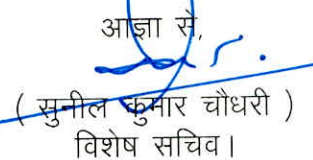 आज्ञा से,
( सुनील कुमार चौधरी )
विशेष सचिव।